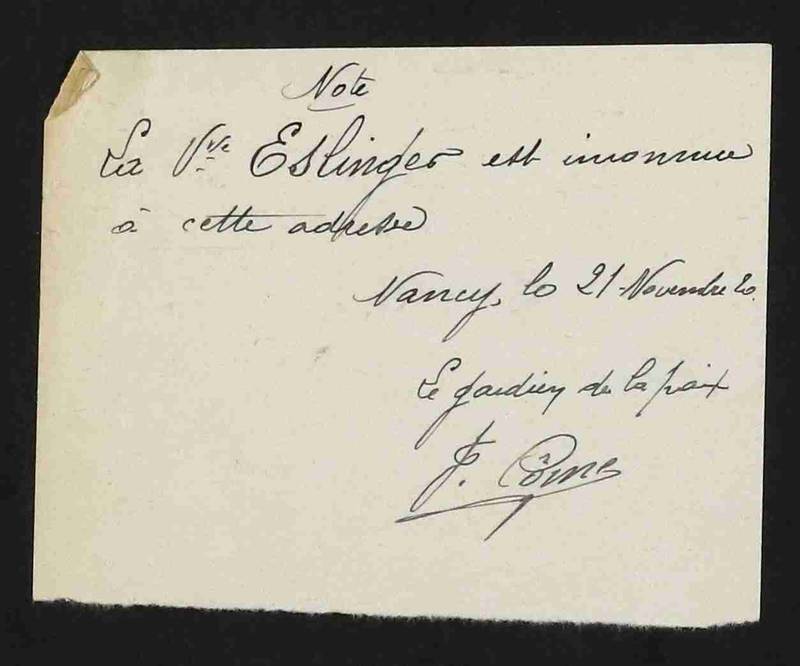 Note
La Vve Eslinger est inconnue
à cette adresse
Nancy, le 21 Novembre 20.
Le gardien de la paix
F. Côme